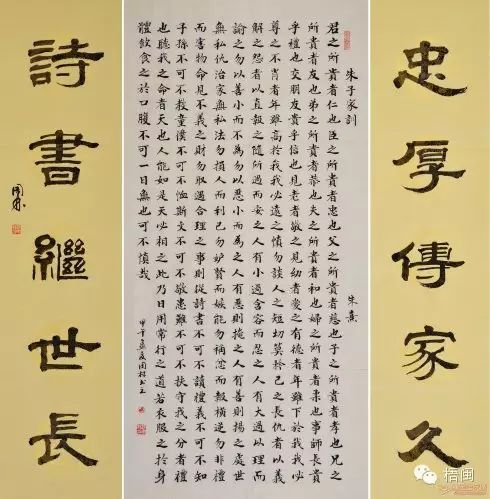 忠厚傳家久
朱子家訓 朱熹
君之所貴者仁也臣之所貴者忠也父之所貴者慈也子之所貴者孝也兄之
所貴者友也弟之所貴者恭也夫之所貴者和也婦之所貴者柔也事師長貴
乎禮也交朋友貴乎信也見老者敬之見幼者愛之有德者年雖下於我我必
尊之不肖者年雖高於我我必遠之慎勿談人之短切莫矜己之長仇者以義
解之怨者以直報之隨所遇而安之人有小過含容而忍之人有大過以理而
諭之勿以善小而不為勿以惡小而為之人有惡則掩之人有善則揚之處世
無私仇治家無私法勿損人而利己勿妒賢而嫉能勿稱忿而報橫逆勿非禮
而害物命見不義之財勿取遇合理之事則從詩書不可不讀禮義不可不知
子孫不可不教童僕不可不恤斯文不可不敬患難不可不扶守我之分者禮
也聽我之命者天也人能如是天必相之此乃日用常行之道若衣服之於身
體飲食之於口腹不可一日無也可不慎哉
詩書繼世長